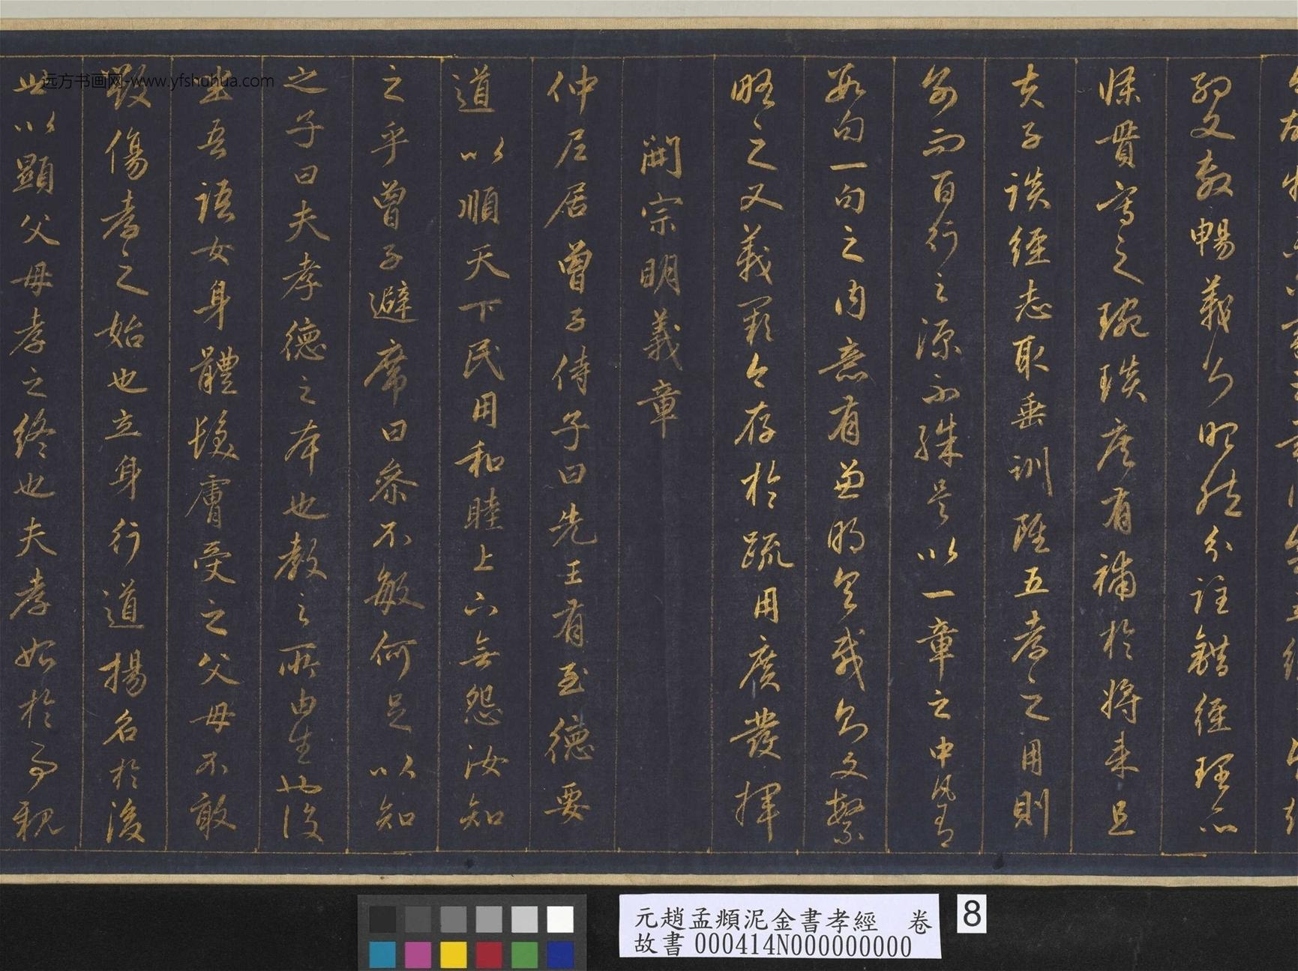 約文敷暢義則昭然分註錯經理亦
條貫寫之琬琰庶有補於將來且
夫子談經志取垂訓雖五孝之用則
別而百行之源不殊是以一章之中凡有
數句一句之內意有兼明具載則文繁
略之又義闕今存於疏用廣發揮
開宗明義章
仲尼居曾子侍子曰先王有至德要
道以順天下民用和睦上下無怨汝知
之乎曾子避席曰參不敏何足以知
之子曰夫孝德之本也教之所由生也復
坐吾語女身體髮膚受之父母不敢
毀傷孝之始也立身行道揚名於後
世以顯父母孝之終也夫孝始於事親
远方书画网-www.yfshuhua.com
元趙孟頫泥金書孝經 卷
故書 000414N000000000
8